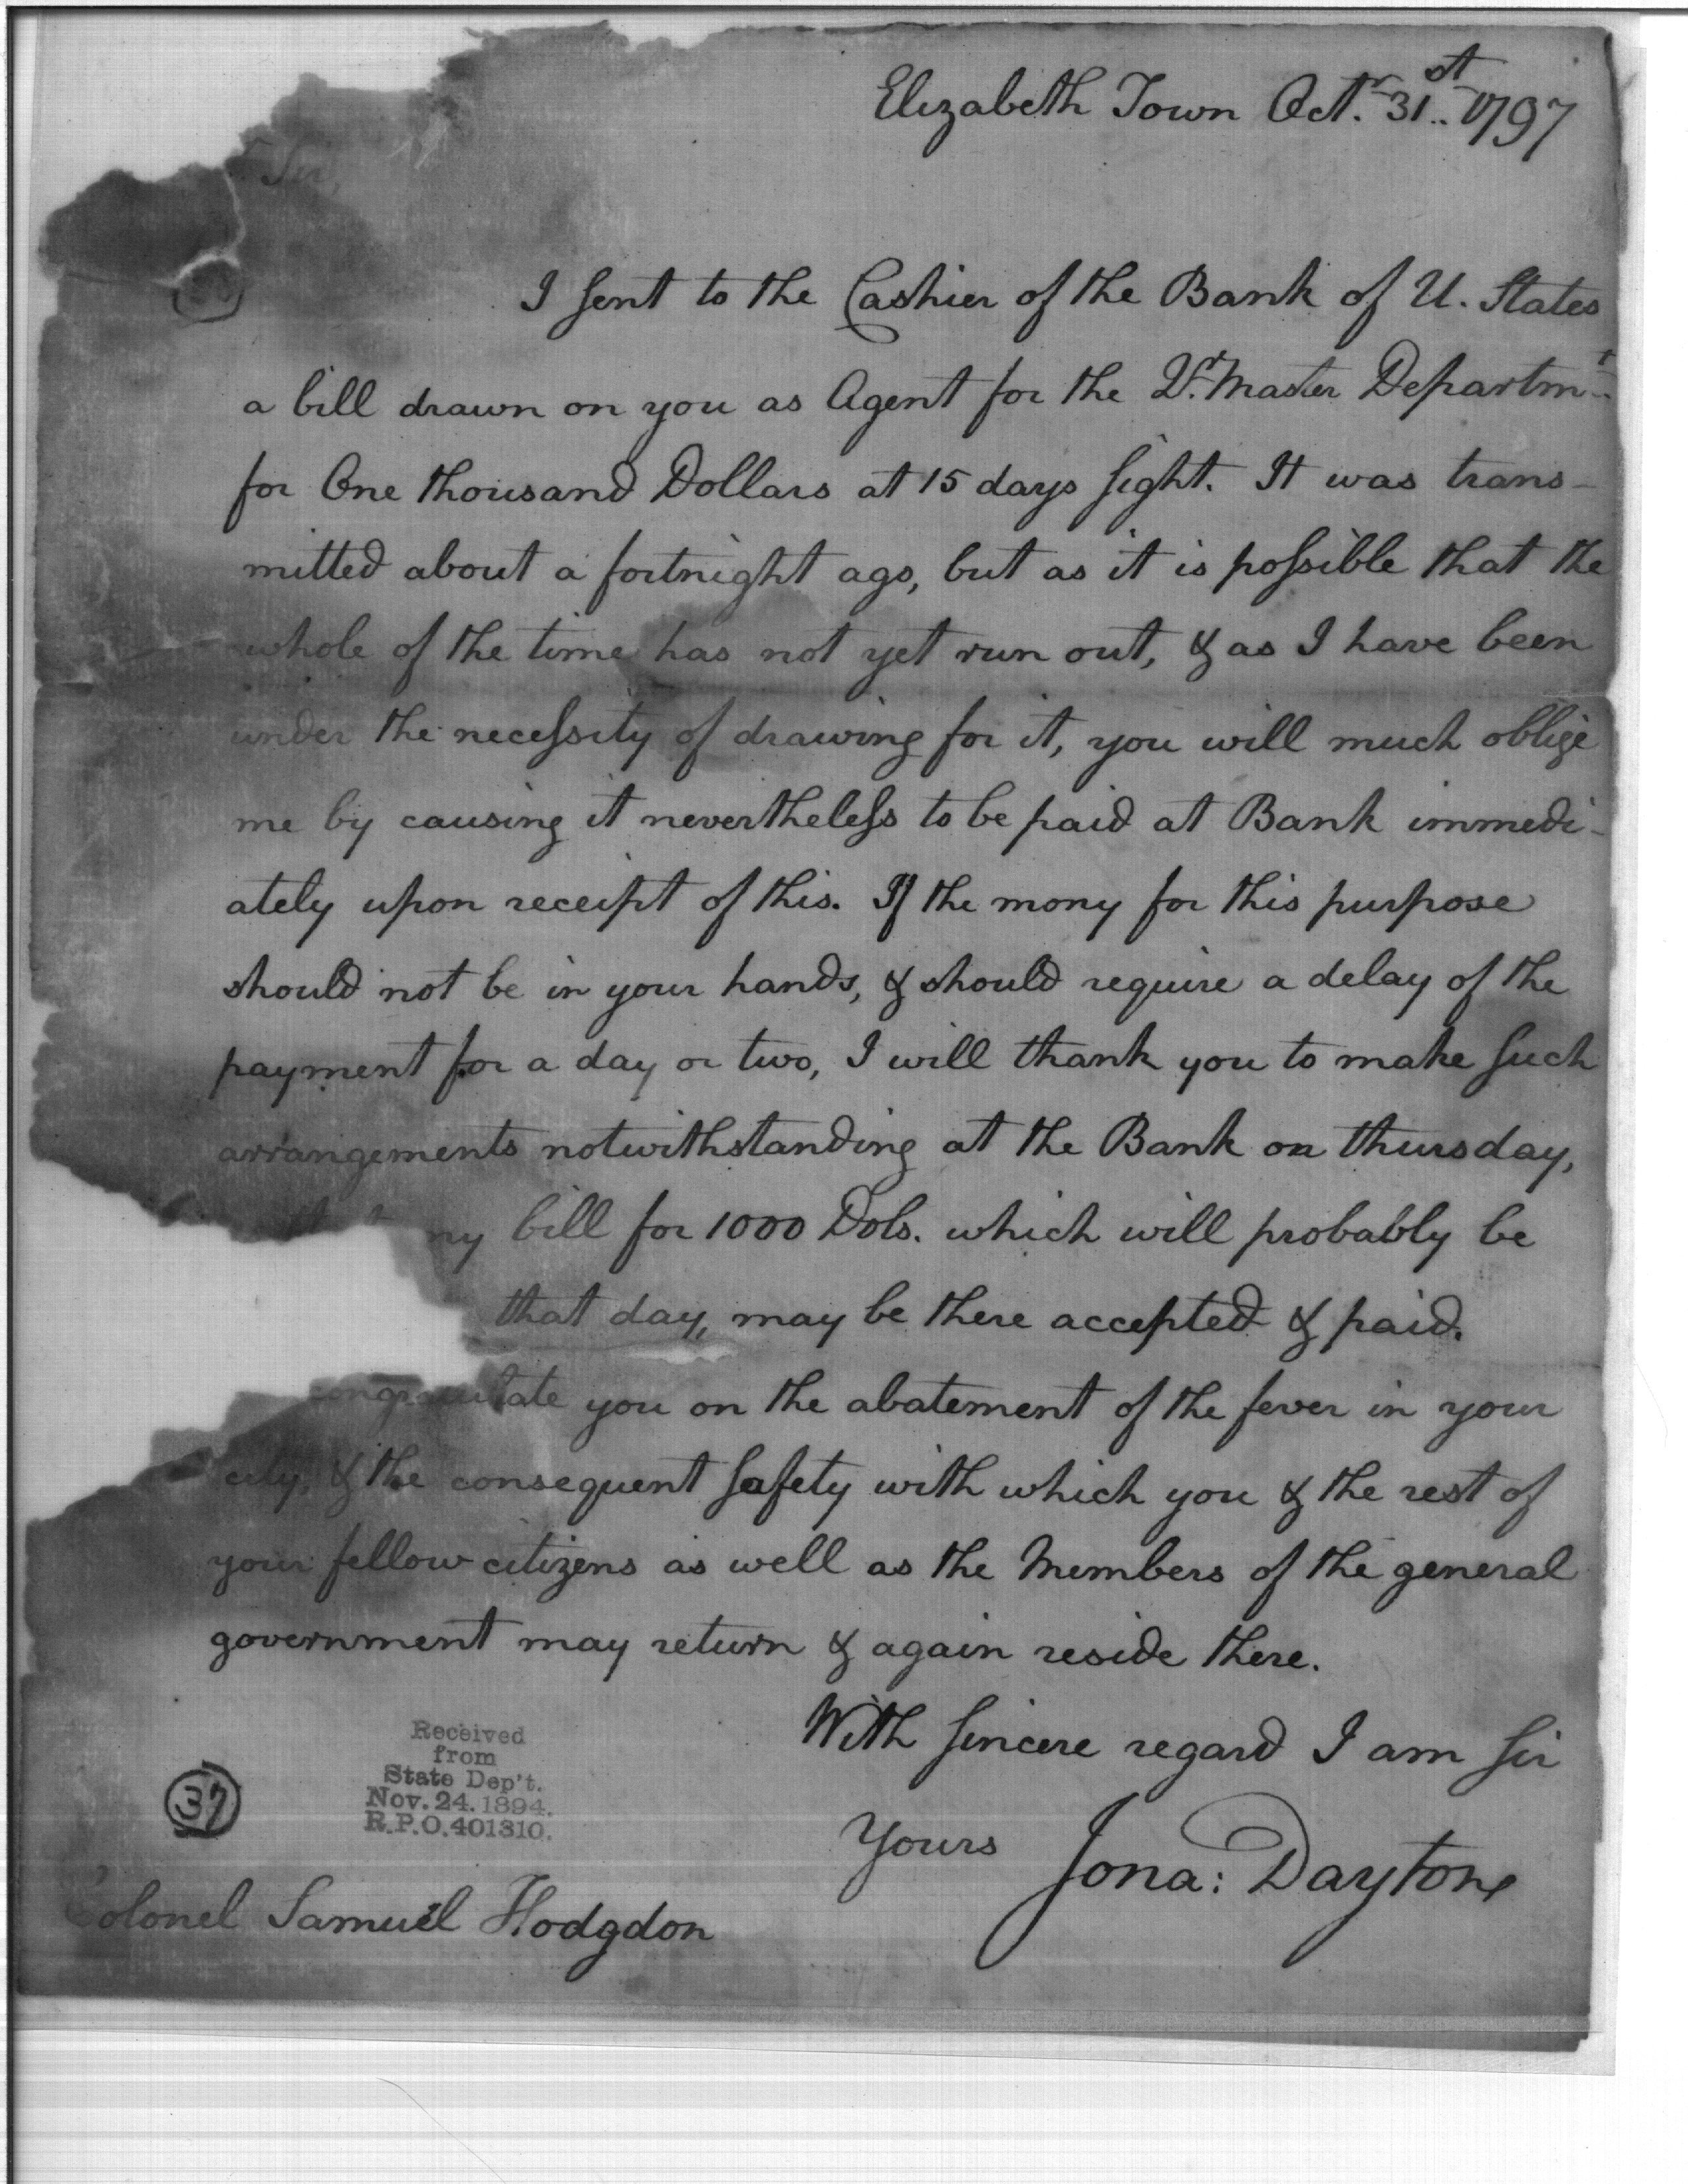 Elizabeth Town Octr. 31st.. 1797
Sir,
I sent to the Cashier of the Bank of U. States
a bill drawn on you as Agent for the Qr. Master Departmt..
for One thousand Dollars at 15 days sight. It was trans-
mitted about a fortnight ago, but as it is possible that the
whole of the time has not yet run out, & as I have been
under the necessity of drawing for it, you will much oblige
me by causing it nevertheless to be paid at Bank immedi-
ately upon receipt of this. If the mony for this purpose
should not be in your hands, & should require a delay of the
payment for a day or two, I will thank you to make such
arrangements notwithstanding at the Bank on thursday,
my bill for 1000 Dols. which will probably be
that day, may be there accepted & paid.
congratulate you on the abatement of the fever in your
city, & the consequent safety with which you & the rest of
your fellow citizens as well as the Members of the general
government may return & again reside there.
With sincere regard I am Sir
Yours Jona: Dayton
Received
from
State Dep't.
Nov. 24. 1894.
R.P.O. 401310.
37
Colonel Samuel Hodgdon